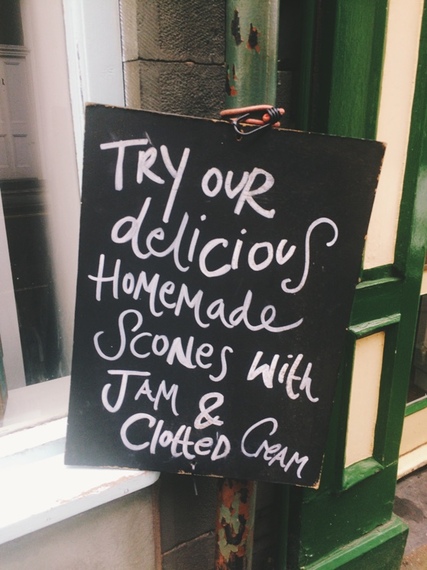 TRY OUR
delicious
Homemade
Scones with
JAM &
Clotted Cream